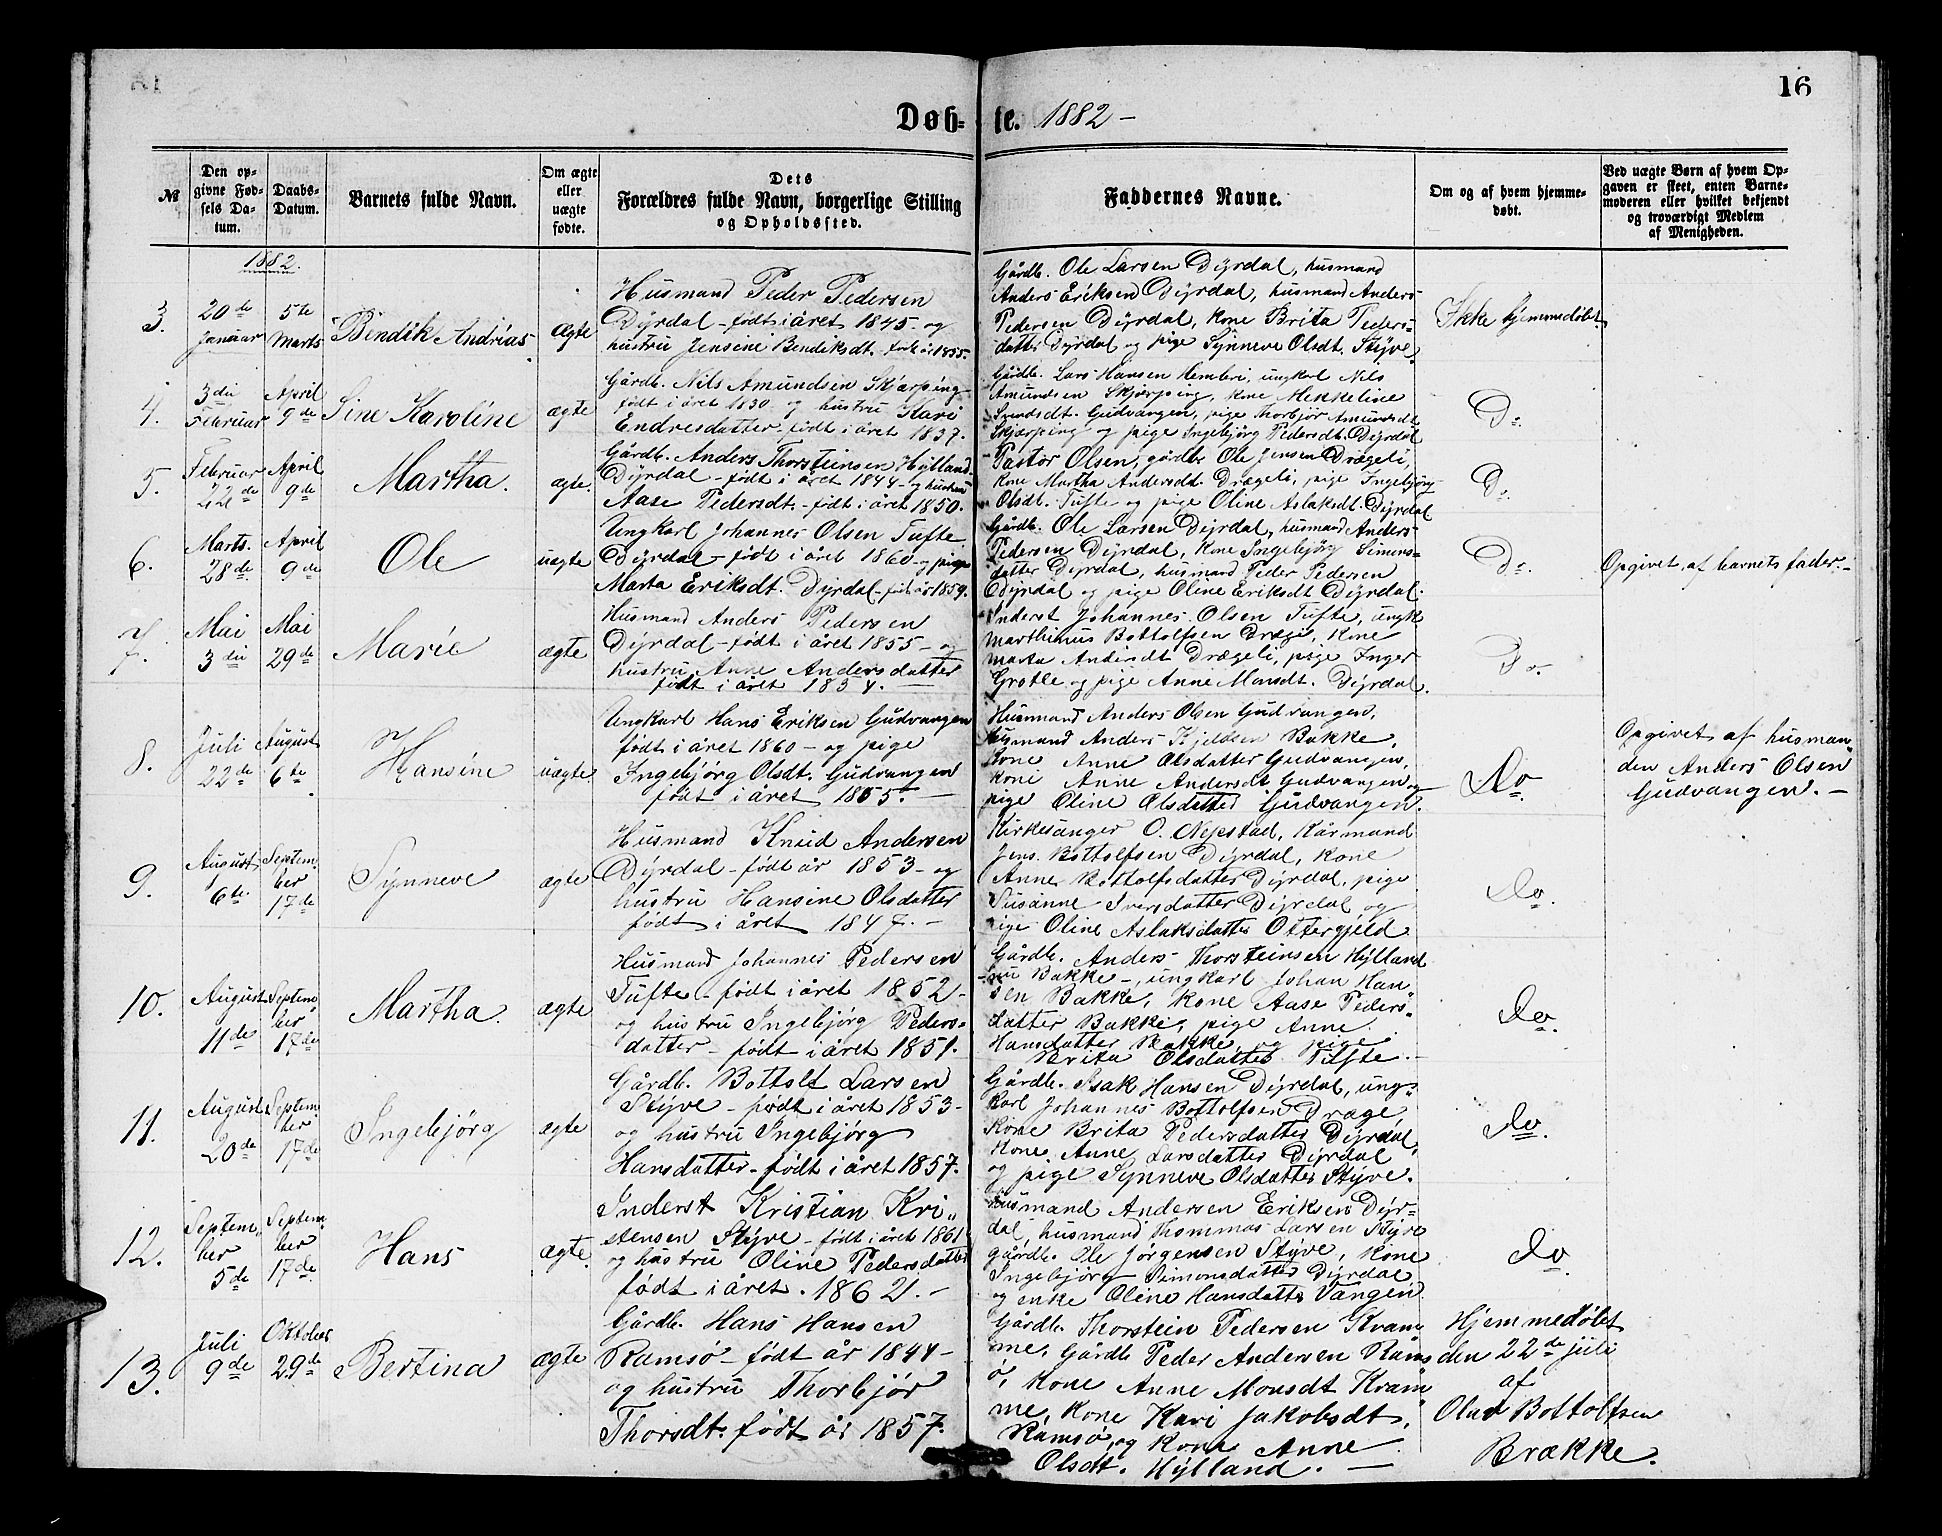 16
Døb- te. 1882 –
№
Den op-
givne Fød-
sels Da-
tum.
Daabs-
Datum.
Barnets fulde Navn.
Om ægte
eller
uægte
fødte.
Dets
Forældres fulde Navn, borgerlige Stilling
og Opholdssted.
Faddernes Navne.
Om og af hvem hjemme-
døbt.
Ved uægte Børn af hvem Op-
gaven er skeet, enten Barne-
moderen eller hvilket bekjendt
og troværdigt Medlem
af Menigheden.
1882.
3.
20de
Januar
5te
Marts
Bendik Andrias
Ægte
Husmand Peder Pedersen
Dÿrdal – født i året 1845 – og
hustru Jensine Bendiksdt. født år 1855.
Gårdb. Ole Larsen Dÿrdal, husmand
Anders Eriksen Dÿrdal, husmand Anders
Pedersen Dÿrdal, kone Brita Peders-
datter Dÿrdal og pige Sÿnneve Olsdt. Stÿve.
Ikke hjemmedøbet
4.
3die
Februar
April
9de
Sine Karoline
ægte
Gårdb. Nils Amundsen Skjærping
født i året 1830 – og hustru Kari
Endresdatter – født i året 1837.
Gårdb. Lars Hansen Hemberi, ungkarl Nils
Amundsen Skjærping, kone Mekkeline
Gudvangen, pige Thorbjør Amundsdt
Skjærping og pige Ingebjörg Pedersdt. Dÿrdal
Do.
5.
Februar
22de
April
9de
Martha.
ægte.
Gårdb. Anders Thorsteinsen Hÿlland
Dÿrdal – født i året 1844 – og hustru
Aase Pedersdt. – født i året 1850.
Pastor Olsen, gårdbr. Ole Jensen Drægeli,
kone Martha Andersdt. Drægeli, pige Ingebjörg
Olsdt. Tufte og pige Oline Aslaksdt. Dÿrdal
Do.
6.
Marts.
28de
April
9de
Ole
uægte
Ungkarl Johannes Olsen Tufte
Dÿrdal – født i året 1860 – og pige
Marta Eriksdt. Dÿrdal – født år 1859.
Gårdb. Ole Larsen Dÿrdal, husmand Anders
Pedersen Dÿrdal, kone Ingebjörg Simons-
datter Dÿrdal, husmand Peder Pedersen
Dÿrdal og pige Oline Eriksdt Dÿrdal.
Do.
Opgivet af barnets fader. –
7.
Mai
3die
Mai
29de
Marie
ægte
Husmand Anders Pedersen
Dÿrdal – født i året 1855 – og
hustru Anne Andersdatter
født i året 1854. –
Inderst Johannes Olsen Tufte, ungk
Marthinus Bottolfsen Dræge, kone
Marta Andersdt Drægeli, pige Inger
Grotle og pige Anne Monsdt. Dÿrdal.
Do.
8.
Juli
22de
August
6te
Hansine
uægte
Ungkarl Hans Eriksen Gudvangen
født i året 1860 – og pige
Ingebjörg Olsdt. Gudvangen
født i året 1855. –
Husmand Anders Olsen Gudvangen,
husmand Anders Kjeldsen Bakke,
kone Anne Olsdatter Gudvangen,
kone Anne Andersdt. Gudvangen og
pige Oline Olsdatter Gudvangen.
Do.
Opgivet af husman-
den Anders Olsen
Gudvangen. –
9.
August
6te
Septem-
ber
17de
Sÿnneve
ægte
Husmand Knud Andersen
Dÿrdal – født år 1853 – og
hustru Hansine Olsdatter
født i året 1847. –
Kirkesanger O. Nepstad, kårmand
Jens Bottolfsen Dÿrdal, kone
Anne Bottolfsdatter Dÿrdal, pige
Susanne Iversdatter Dÿrdal og
pige Oline Aslaksdatter Ottergjeld
Do.
10.
August
11de
Septem-
ber
17de
Martha.
ægte
Husmand Johannes Pedersen
Tufte – født i året 1852 –
og hustru Ingebjörg Peders-
datter – født i året 1851.
Gårdb. Anders Thorsteinsen Hÿlland
nu Bakke –, ungkarl Johan Han-
sen Bakke, kone Aase Peders-
datter Bakke, pige Anne
Hansdatter Bakke, og pige
Brita Olsdatter Tufte. –
Do.
11.
August
20de
Septem-
ber
17de
Ingebjörg
ægte
Gårdb. Bottolt Larsen
Stÿve – født i året 1853 –
og hustru Ingebjörg
Hansdatter – født i året 1857.
Gårdb. Isak Hansen Dÿrdal, ung-
karl Johannes Bottolfsen Drage,
kone Brita Pedersdatter Dÿrdal,
kone Anne Larsdatter Dÿrdal
og pige Sÿnneve Olsdatter Stÿve.
Do.
12.
Septem-
ber
5de
Septem-
ber
17de
Hans
ægte
Inderst Kristian Kri-
stensen Stÿve – født i året 1861
og hustru Oline Pedersdatter
født i året 1862. –
Husmand Andersen Eriksen Dÿr-
dal, husmand Thommas Larsen Stÿve
gårdb. Ole Jørgensen Stÿve, kone
Ingebjörg Simonsdatter Dÿrdal
og enke Oline Hansdatter Vangen
Do.
13.
Juli
9de
Oktober
29de
Bertina
ægte
Gårdb. Hans Hansen
Ramsö – født år 1844 –
og hustru Thorbjör
Thorsdt. født år 1857.
Gårdb. Thorstein Pedersen Kvam
me, Gårdb Peder Andersen Rams
ö, kone Anne Monsdt Kvam
me, kone Kari Jakobsdt.
Ramsö, og kone Anne
Olsdt. Hÿlland. –
Hjemmedøbet
den 22de juli
af
Olav Bottolfsen
Brække.